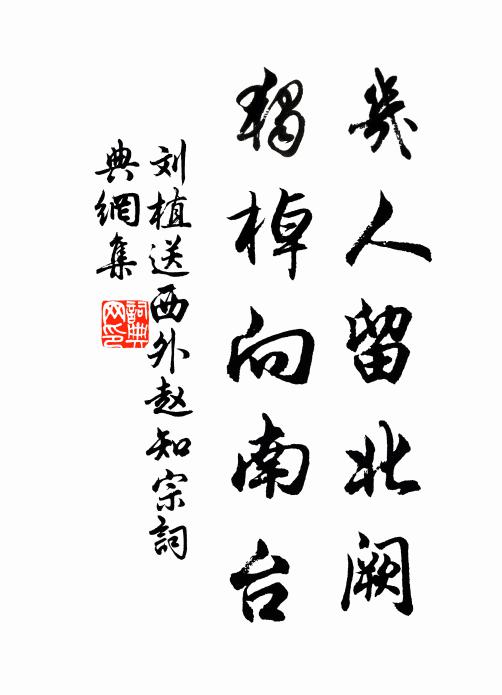 幾人留北阙
独棹向南台
刘植送西外赵知宗詞
典網集
詞典网印